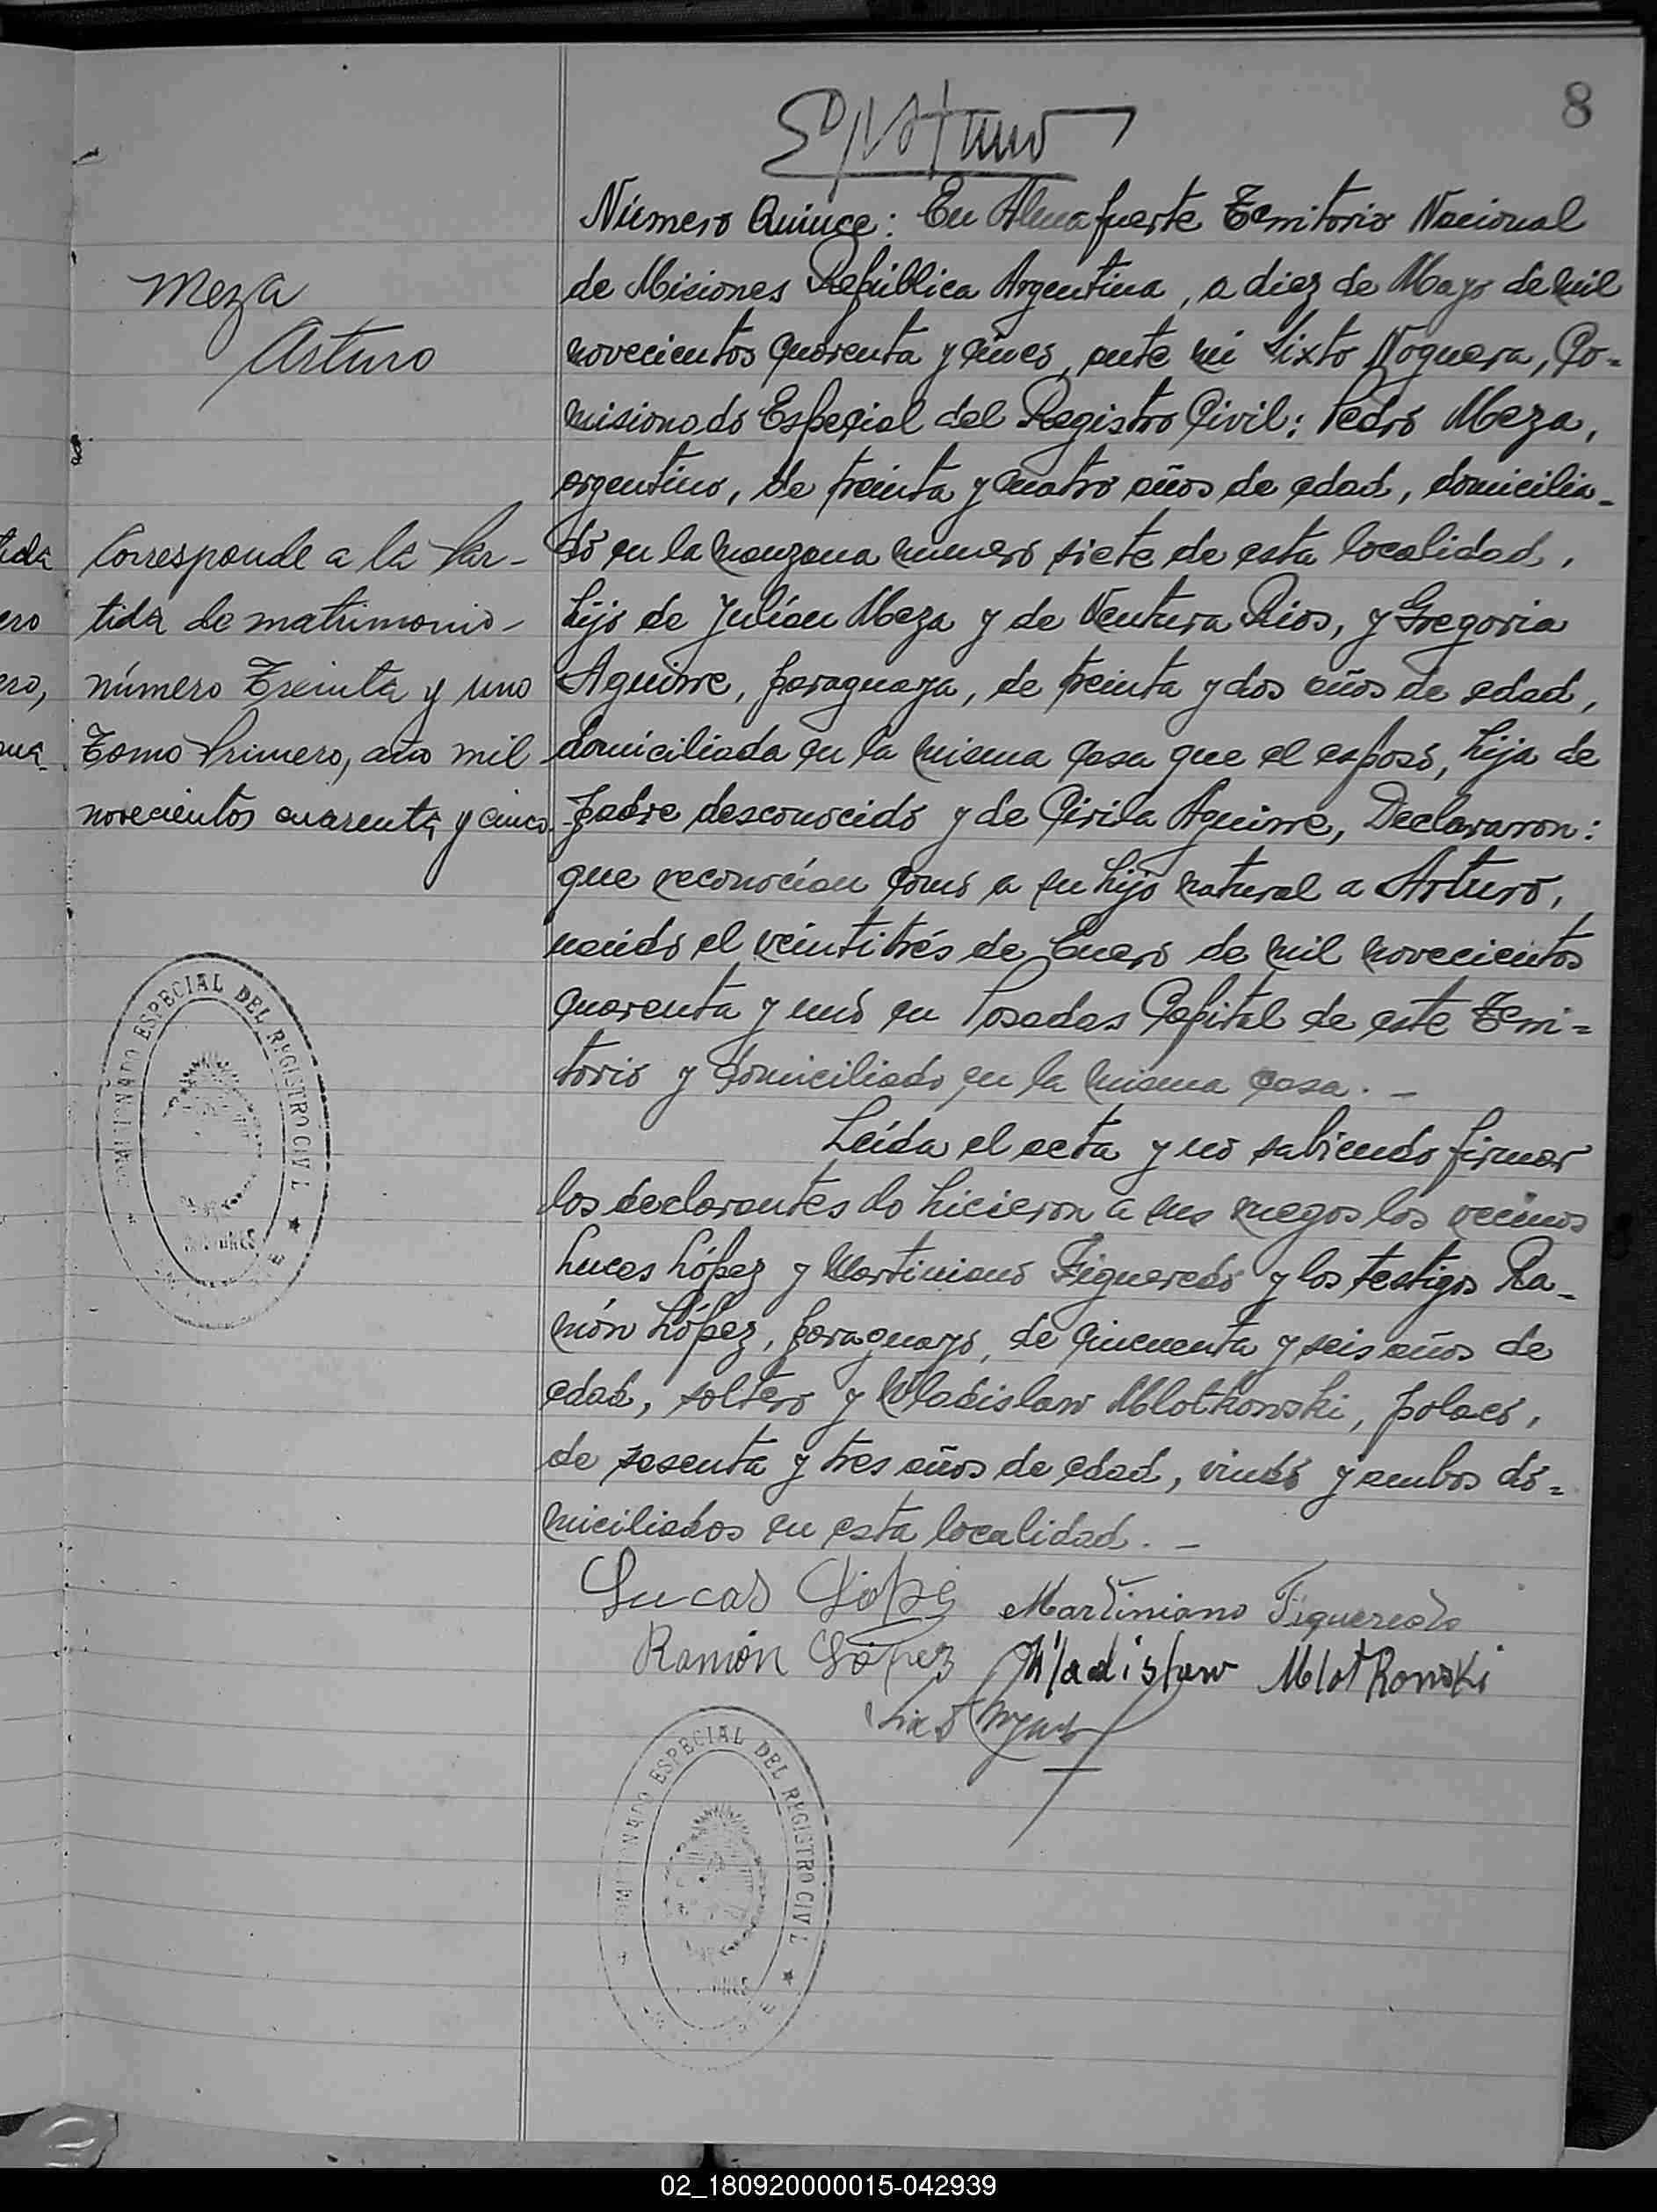 8
Número Quince: En Almafuerte Territorio Nacional
de Misiones República Argentina, a diez de Mayo de mil
novecientos cuarenta y cinco, ante mi Sixto Noguera, Co=
misionado Especial del Registro Civil: Pedro Meza,
argentino, de treinta y cuatro años de edad, domicilia-
do en la manzana numero siete de esta localidad,
hijo de Julián Meza y de Ventura Rios, y Gregoria
Aguirre, paraguaya, de treinta y dos años de edad,
domiciliada en la misma casa que el esposo, hija de
padre desconocido y de Cirila Aguirre, Declararon:
que reconocían como a su hijo natural a Arturo,
nacido el veintitrés de Enero de mil novecientos
cuarenta y uno en Posadas Capital de este Terri=
torio y domiciliado en la misma casa. -
Leída el acta y no sabiendo firmar
los declarantes lo hicieron a sus ruegos los vecinos
Lucas López y Martiniano Figueredo y los testigos Ra-
món López, paraguayo, de cincuenta y seis años de
edad, soltero y Wladislaw Mlotkowski, polaco,
de sesenta y tres años de edad, viudo y ambos do=
miciliados en esta localidad. -
Lucas Lópe Martiniano Figueredo
Ramón López Wladislaw Mlotkowski
Meza
Arturo
Corresponde a la Par-
tida de matrimonio-
número Treinta y uno
Tomo Primero, año mil
novecientos cuarenta y cinco.
tida
ero
ero,
COMISIONADO ESPECIAL DEL REGISTRO CIVIL
COMISIONADO ESPECIAL DEL REGISTRO CIVIL
02_180920000015-042939